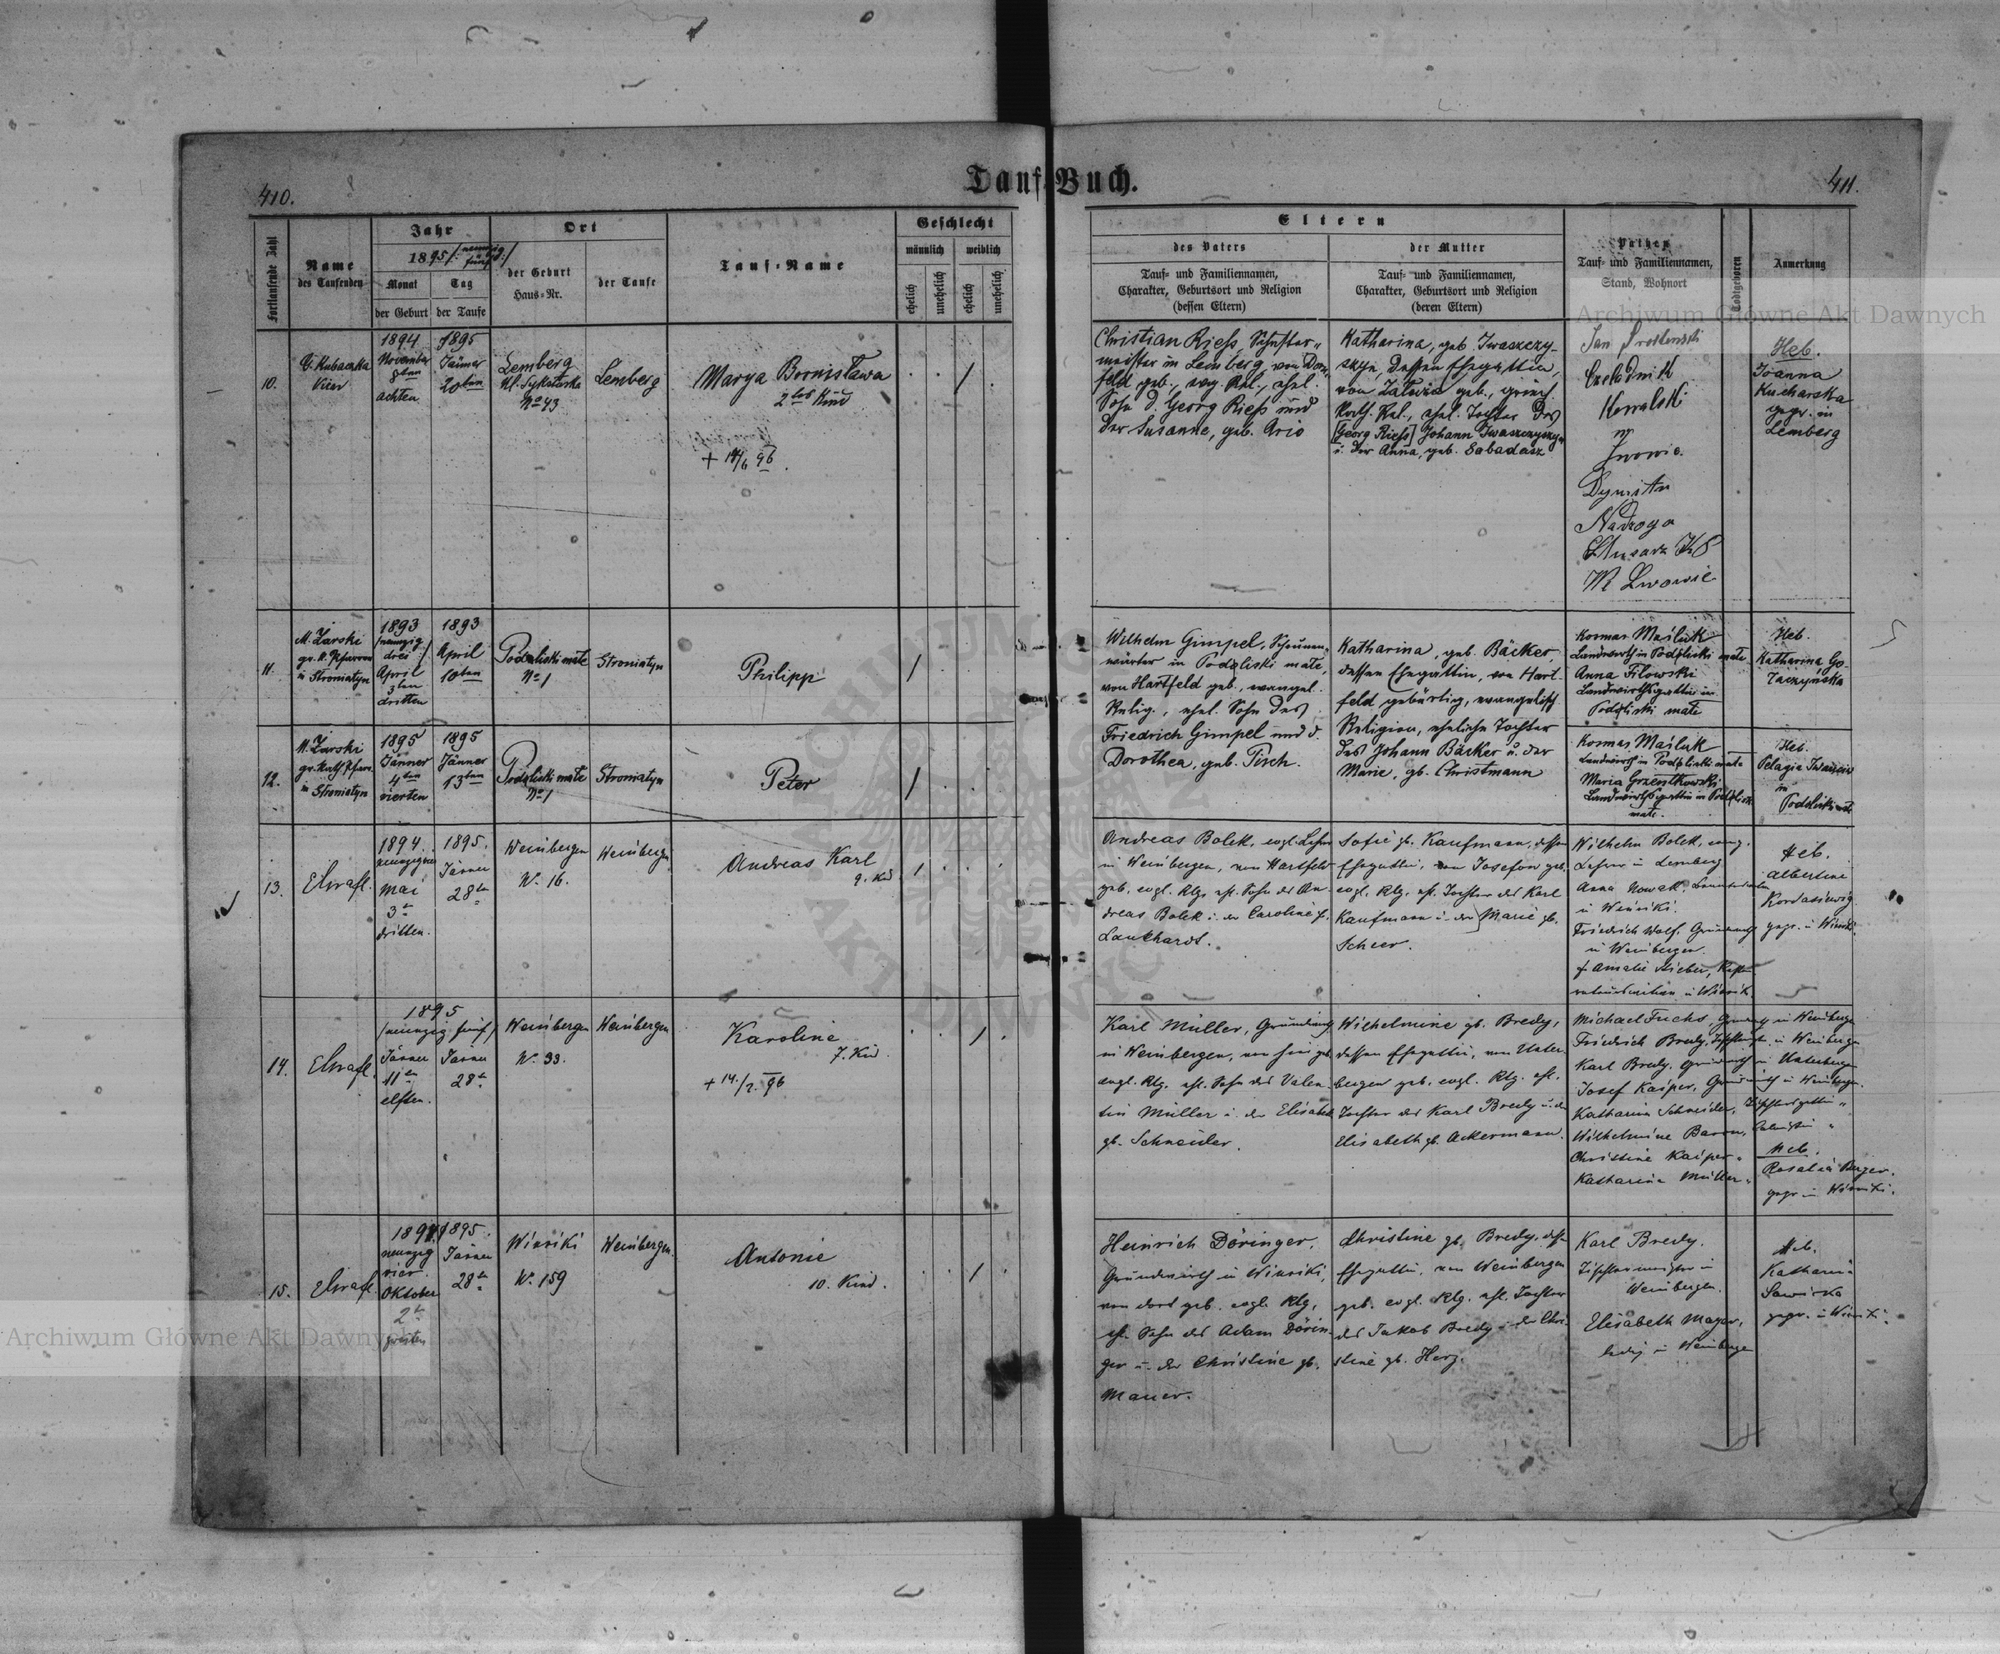 410.
Tauf-Buch.
411.
Fortlaufende Zahl
Name
des Taufenden
Jahr
1895 /: neunzig
fünf :/
Monat
der Geburt
Tag
der Taufe
Ort
der Geburt
Haus-Nr.
der Taufe
Tauf-Name
Geschlecht
männlich
weiblich
ehelich
unehelich
ehelich
unehelich
Eltern
des Vaters
Tauf- und Familiennamen,
Charakter, Geburtsort und Religion
(dessen Eltern)
der Mutter
Tauf- und Familiennamen,
Charakter, Geburtsort und Religion
(deren Eltern)
Pathen
Tauf- und Familiennamen,
Stand, Wohnort
Todtgeboren
Anmerkung
Archiwum Główne Akt Dawnych
10.
1894
November
8ten
achten
1895
Jänner
20ten
Lemberg
No 43
Lemberg
Marya Bronisława
2tes Kind
+ 14/6 96.
Christian Riess, Schuster-
meister in Lemberg, von Dorn-
feld geb., evg. Rel., ehel.
Sohn d. Georg Riess und
der Susanne, geb. Ario
Katharina, geb. Iwaszczy-
szyn, dessen Ehegattin,
von Załuże geb., griech.
kath. Rel., ehel. Tochter des
[Georg Riess] Johann Iwaszczyszyn
u. der Anna, geb. Sabadasz
Jan
Czeladnik
Kowalski
Lwowie.
Dymitr
Nadroga
W Lwowie
Heb.
Joanna
Kucharska
gepr. in
Lemberg
11.
M. Zarski
gr. k. Pfarrer
in Stroniatyn
1893
/neunzig
drei/
April
3ten
dritten
1893
April
10ten
Podzliski małe
No 1
Stroniatyn
Philipp
Wilhelm Gimpel, Scheunen-
wärter in Podzliski małe,
von Hartfeld geb., evangel.
Relig., ehel. Sohn des
Friedrich Gimpel und d.
Dorothea, geb. Tisch.
Katharina, geb. Bäcker,
dessen Ehegattin, von Hart-
feld gebürtig, evangelisch
Religion, eheliche Tochter
des Johann Bäcker u. der
Marie, gb. Christmann
Kosmas Maśluk
Landwirth in Podzliski małe
Anna Filowski
Landwirthsgattin in
Podzliski małe
Heb.
Katharina Go-
12.
M. Zarski
gr. kath. Pfarr.
in Stroniatyn
1895
Jänner
4ten
vierten
1895
Jänner
13ten
Podzliski małe
No 1
Stroniatyn
Peter
Kosmas Maśluk
Landwirth in Podzliski małe
Maria
Landwirthsgattin in Podzliski
małe.
Heb.
Pelagia
in
Podzliski małe
13.
1894.
Mai
3te
dritten.
1895.
Jänner
28te
Weinbergen
Nr. 16.
Weinbergen
Andreas Karl
9. Kind
Andreas Bolek, evgl. Lehrer
in Weinbergen, von Hartfeld
geb. evgl. Rlg. ehl. Sohn des An-
dreas Bolek u. der Caroline g.
Lankhardt.
Sofie gb. Kaufmann, dessen
Ehegattin, von Josefow geb.
evgl. Rlg. ehl. Tochter des Karl
Kaufmann u. der Marie gb.
Scheer.
Wilhelm Bolek, evang.
Lehrer in Lemberg
Anna Nowak,
in Winniki.
Friedrich Wolf, Grundwirth
in Weinbergen.
Amalie Stieber,
Heb.
Albertine
gepr. in Winniki.
14.
1895
/neunzig fünf/
Jänner
11ten
elften.
Jänner
28te
Weinbergen
Nr. 33.
Weinbergen
Karoline
7. Kind
+ 14./2. 96
Karl Müller, Grundwirth
in Weinbergen, von hier geb.
evgl. Rlg. ehl. Sohn des Valen-
tin Müller u. der Elisabeth
gb. Schneider.
Wilhelmine gb. Bredy,
dessen Ehegattin, von Unter-
bergen geb. evgl. Rlg. ehl.
Tochter des Karl Bredy u. der
Elisabeth gb. Ackermann.
Michael Fuchs, Grundwirth in Weinbergen
Friedrich Bredy, in Weinbergen
Karl Bredy, Grundwirth in Unterbergen
Josef Kasper, Grundwirth in Weinbergen.
Katharina Schneider,
Wilhelmine Baron,
Christine Kasper
Katharina Müller
Heb.
Rosalia Berger.
gepr. in Winniki.
15.
neunzig
vier.
Oktober
2te
zweiten
1895.
Jänner
28te
Winniki
Nr. 159
Weinbergen.
Antonie
10. Kind.
Heinrich Döringer,
Grundwirth in Winniki,
von dort geb. evgl. Rlg,
ehl. Sohn des Adam Dörin-
ger u. der Christine gb.
Mauer.
Christine gb. Bredy, dess.
Ehegattin, von Weinbergen
geb. evgl. Rlg. ehl. Tochter
des Jakob Bredy u. der Chri-
stine gb. Herz.
Karl Bredy.
Tischlermeister in
Weinbergen.
Elisabeth Mayer,
ledig in Weinbergen
Heb.
Katharina
Sawicka
gepr. in Winniki.
Archiwum Główne Akt Dawnych